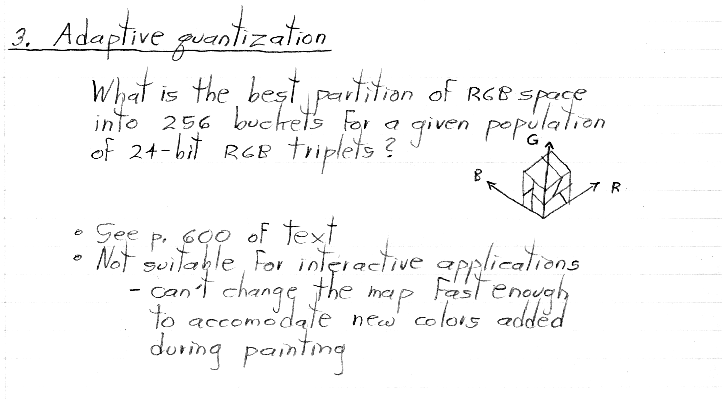 3. Adaptive quantization
What is the best partition of RGB space
into 256 buckets for a given population
of 24-bit RGB triplets?
G
B
R
• See p. 600 of text
• Not suitable for interactive applications
- can't change the map fast enough
to accomodate new colors added
during painting